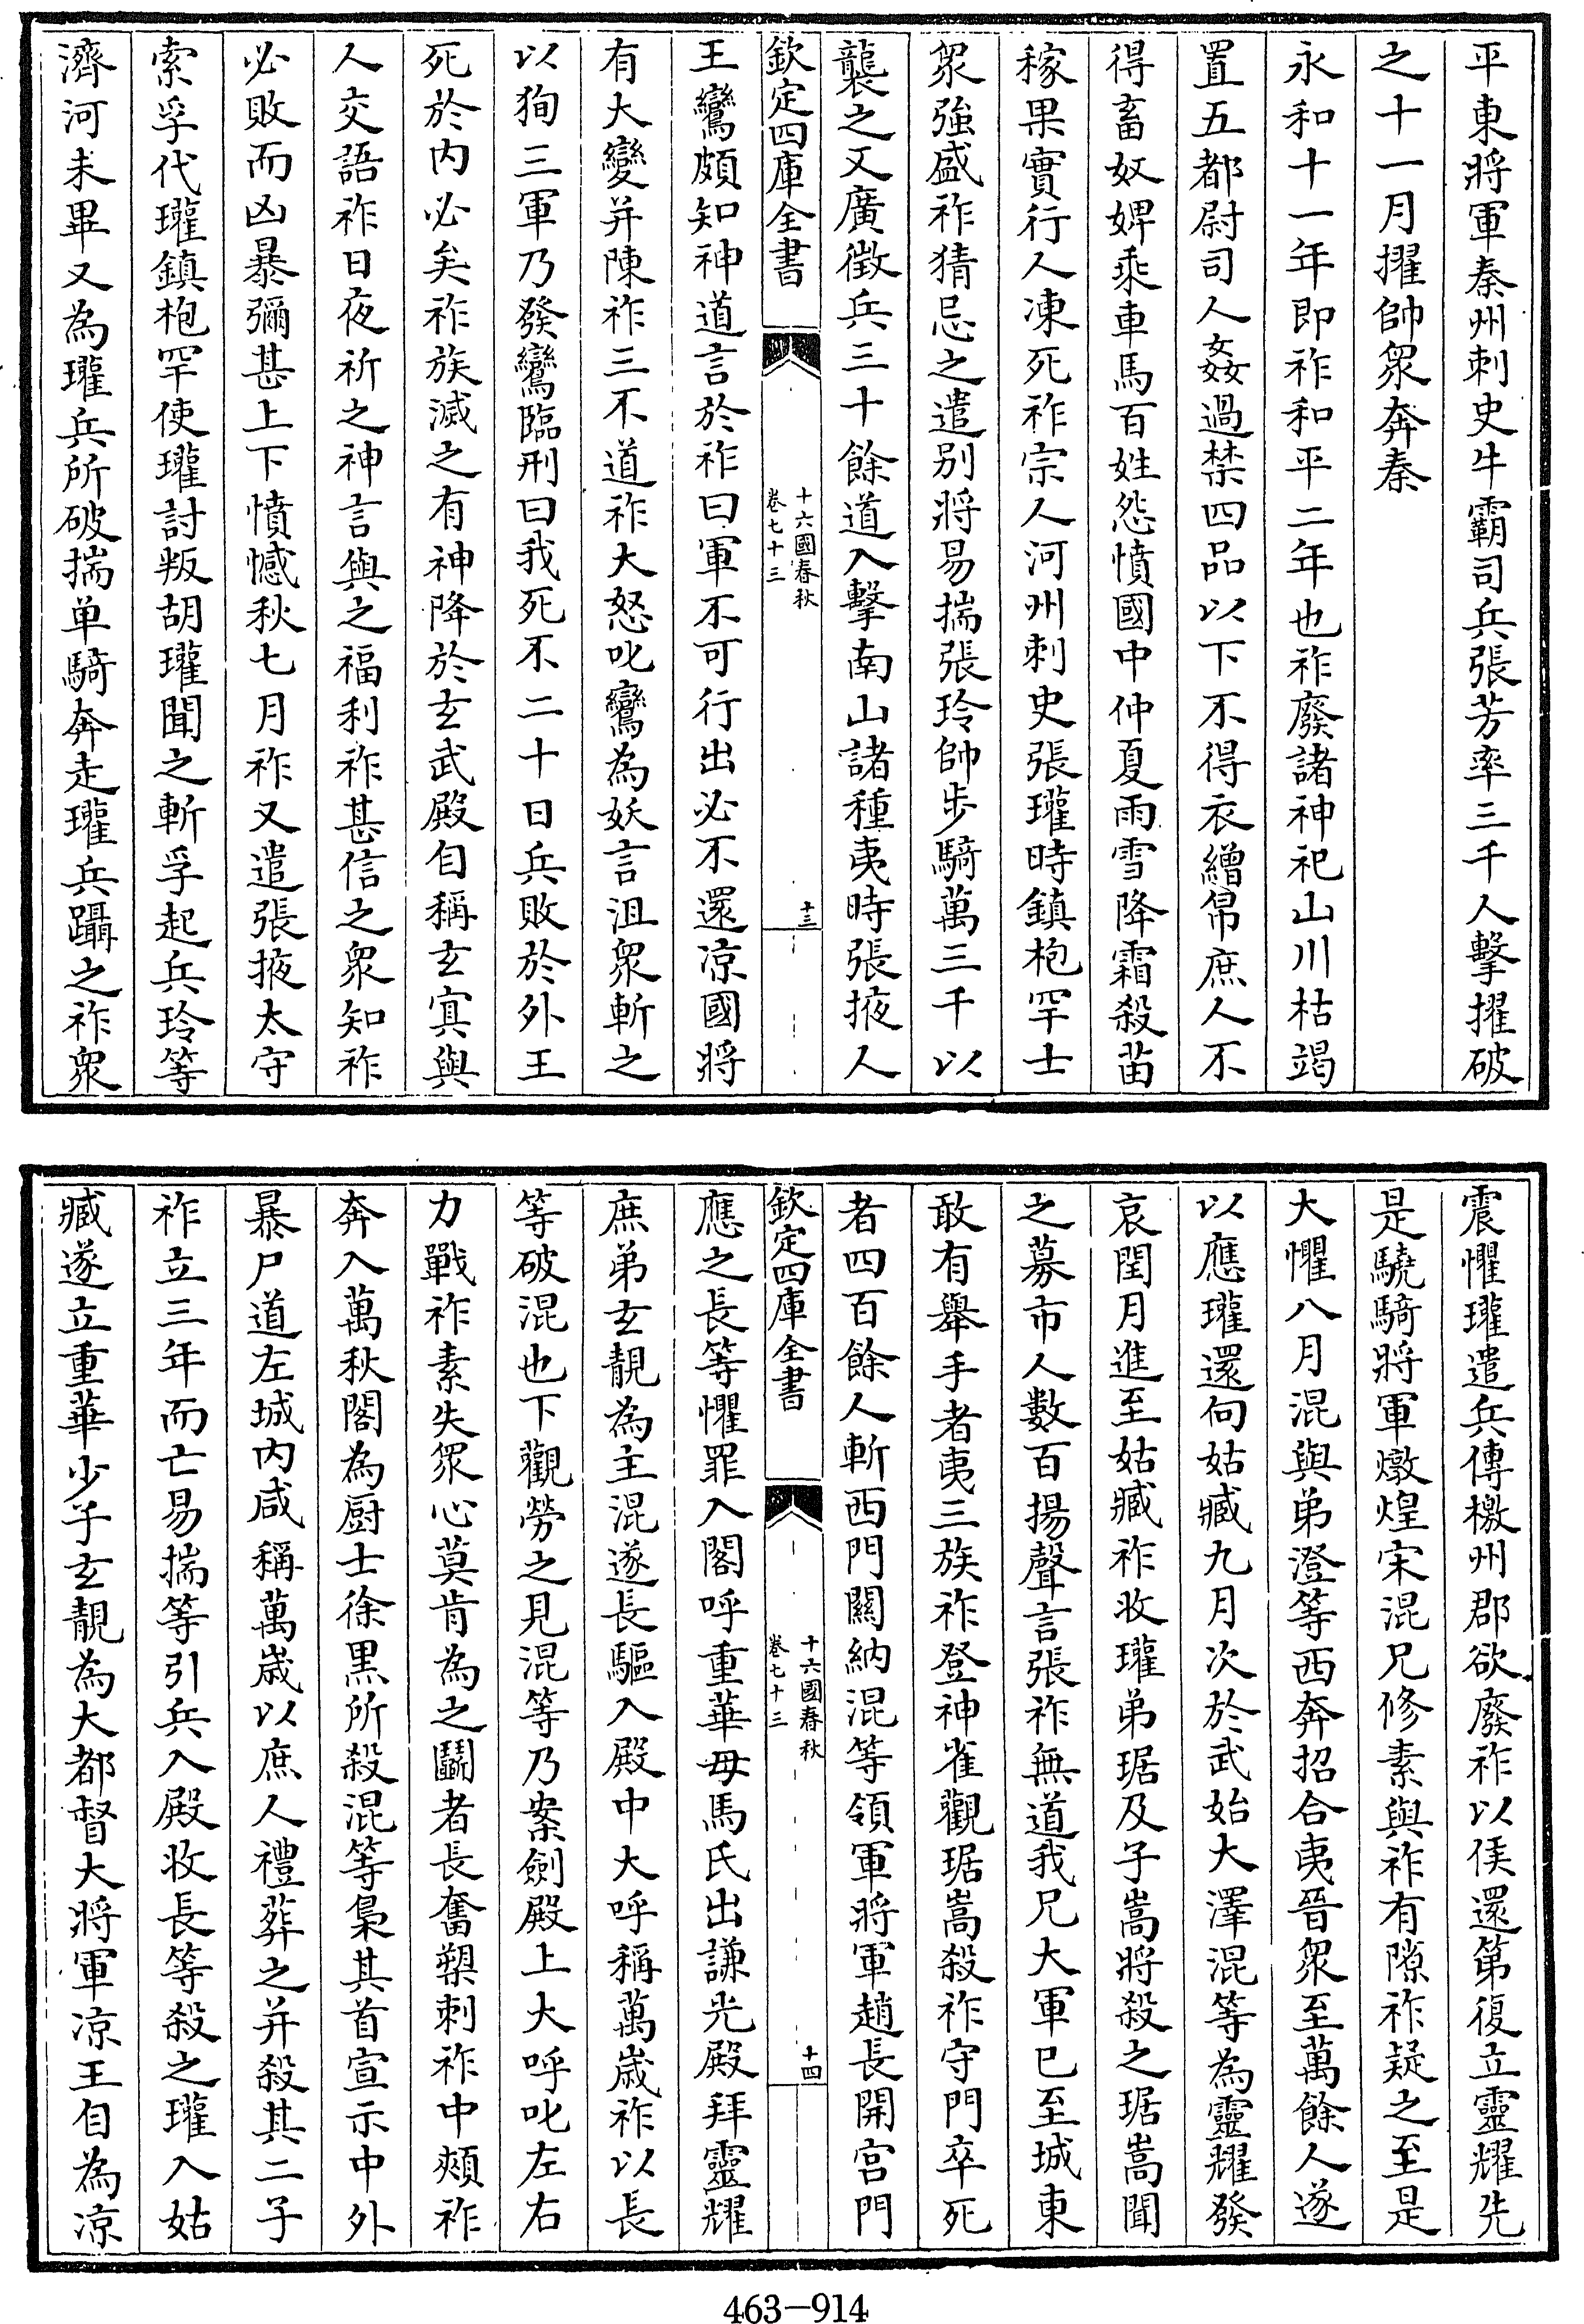 平東將軍秦州刺史牛霸司兵張芳率三千人擊擢破
之十一月擢帥衆奔秦
永和十一年即祚和平二年也祚廢諸神祀山川枯竭
置五都尉司人姦過禁四品以下不得衣繒帛庶人不
得畜奴婢乘車馬百姓怨憤國中仲夏雨雪降霜殺苗
稼果實行人凍死祚宗人河州刺史張瓘時鎮枹罕士
衆強盛祚猜忌之遣别將易揣張玲帥步騎萬三千以
襲之又廣徴兵三十餘道入擊南山諸種夷時張掖人
欽定四庫全書
十六國春秋
卷七十三
十三
王鸞頗知神道言於祚曰軍不可行出必不還涼國將
有大變并陳祚三不道祚大怒叱鸞為妖言沮衆斬之
以狥三軍乃發鸞臨刑曰我死不二十日兵敗於外王
死於内必矣祚族滅之有神降於玄武殿自稱玄㝠與
人交語祚日夜祈之神言與之福利祚甚信之衆知祚
必敗而凶暴彌甚上下憤憾秋七月祚又遣張掖太守
索孚代瓘鎮枹罕使瓘討叛胡瓘聞之斬孚起兵玲等
濟河未畢又為瓘兵所破揣单騎奔走瓘兵躡之祚衆
震懼瓘遣兵傳檄州郡欲廢祚以侯還第復立靈耀先
是驍騎將軍燉煌宋混兄修素與祚有隙祚疑之至是
大懼八月混與弟澄等西奔招合夷晉衆至萬餘人遂
以應瓘還向姑臧九月次於武始大澤混等為靈耀發
哀閏月進至姑臧祚收瓘弟琚及子嵩將殺之琚嵩聞
之募市人數百揚聲言張祚無道我兄大軍已至城東
敢有舉手者夷三族祚登神雀觀琚嵩殺祚守門卒死
者四百餘人斬西門關納混等領軍將軍趙長開宮門
欽定四庫全書
十六國春秋
卷七十三
十四
應之長等懼罪入閤呼重華母馬氏出謙光殿拜靈耀
庶弟玄靚為主混遂長驅入殿中大呼稱萬歳祚以長
等破混也下觀勞之見混等乃案劍殿上大呼叱左右
力戰祚素失衆心莫肯為之鬭者長奮槊刺祚中頰祚
奔入萬秋閣為厨士徐黒所殺混等梟其首宣示中外
暴尸道左城内咸稱萬歳以庶人禮葬之并殺其二子
祚立三年而亡易揣等引兵入殿收長等殺之瓘入姑
臧遂立重華少子玄靚為大都督大將軍涼王自為涼
463-914